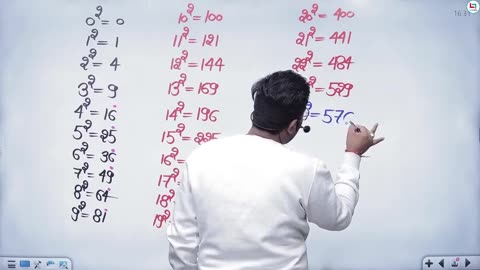 0² = 0
1² = 1
2² = 4
3² = 9
4² = 16
5² = 25
6² = 36
7² = 49
8² = 64
9² = 81
10² = 100
11² = 121
12² = 144
13² = 169
14² = 196
15² = 225
16²
17²
18²
19²
20² = 400
21² = 441
22² = 484
= 529
² = 576
16:31